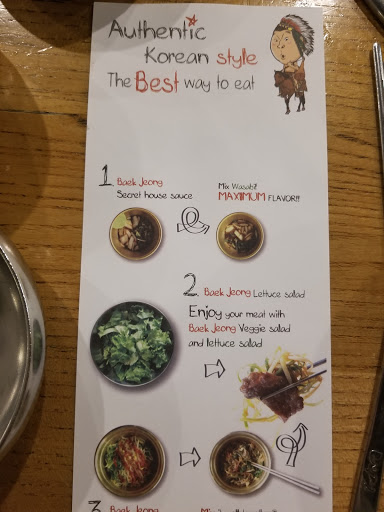 Authentic
Korean style
The Best way to eat
1. Baek Jeong
Secret house sauce
Mix Wasabi!!
MAXIMUM FLAVOR!!
2. Baek Jeong Lettuce salad
Enjoy your meat with
Baek Jeong Veggie salad
and lettuce salad
3. Baek Jeong